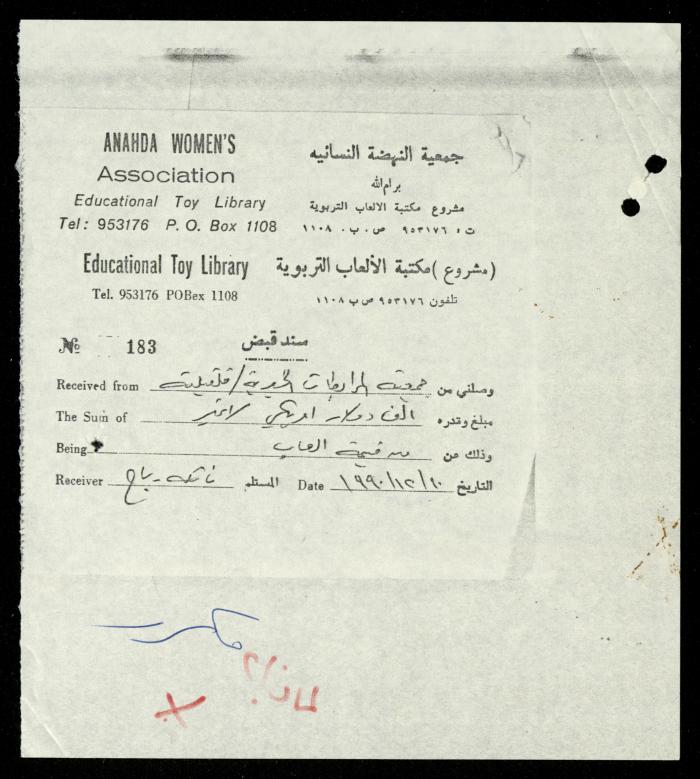 ANAHDA WOMEN'S
Association
Educational Toy Library
Tel: 953176 P. O. Box 1108
جمعية النهضة النسائيه
برام الله
مشروع مكتبة الالعاب التربوية
ت ٩٥٣١٧٦ ص . ب . ١١٠٨
Educational Toy Library (مشروع) مكتبة الألعاب التربوية
Tel. 953176 POBex 1108 تلفون ٩٥٣١٧٦ ص ب ١١٠٨
سند قبض
№ 183
Received from جمعية المرابطات الخيرية / قلقيلية وصلني من
The Sum of الف دولار امريكي لاغير مبلغ وقدره
Being من قيمة العاب وذلك عن
Receiver المستلم Date ١٩٩٠/١٢/١٠ التاريخ